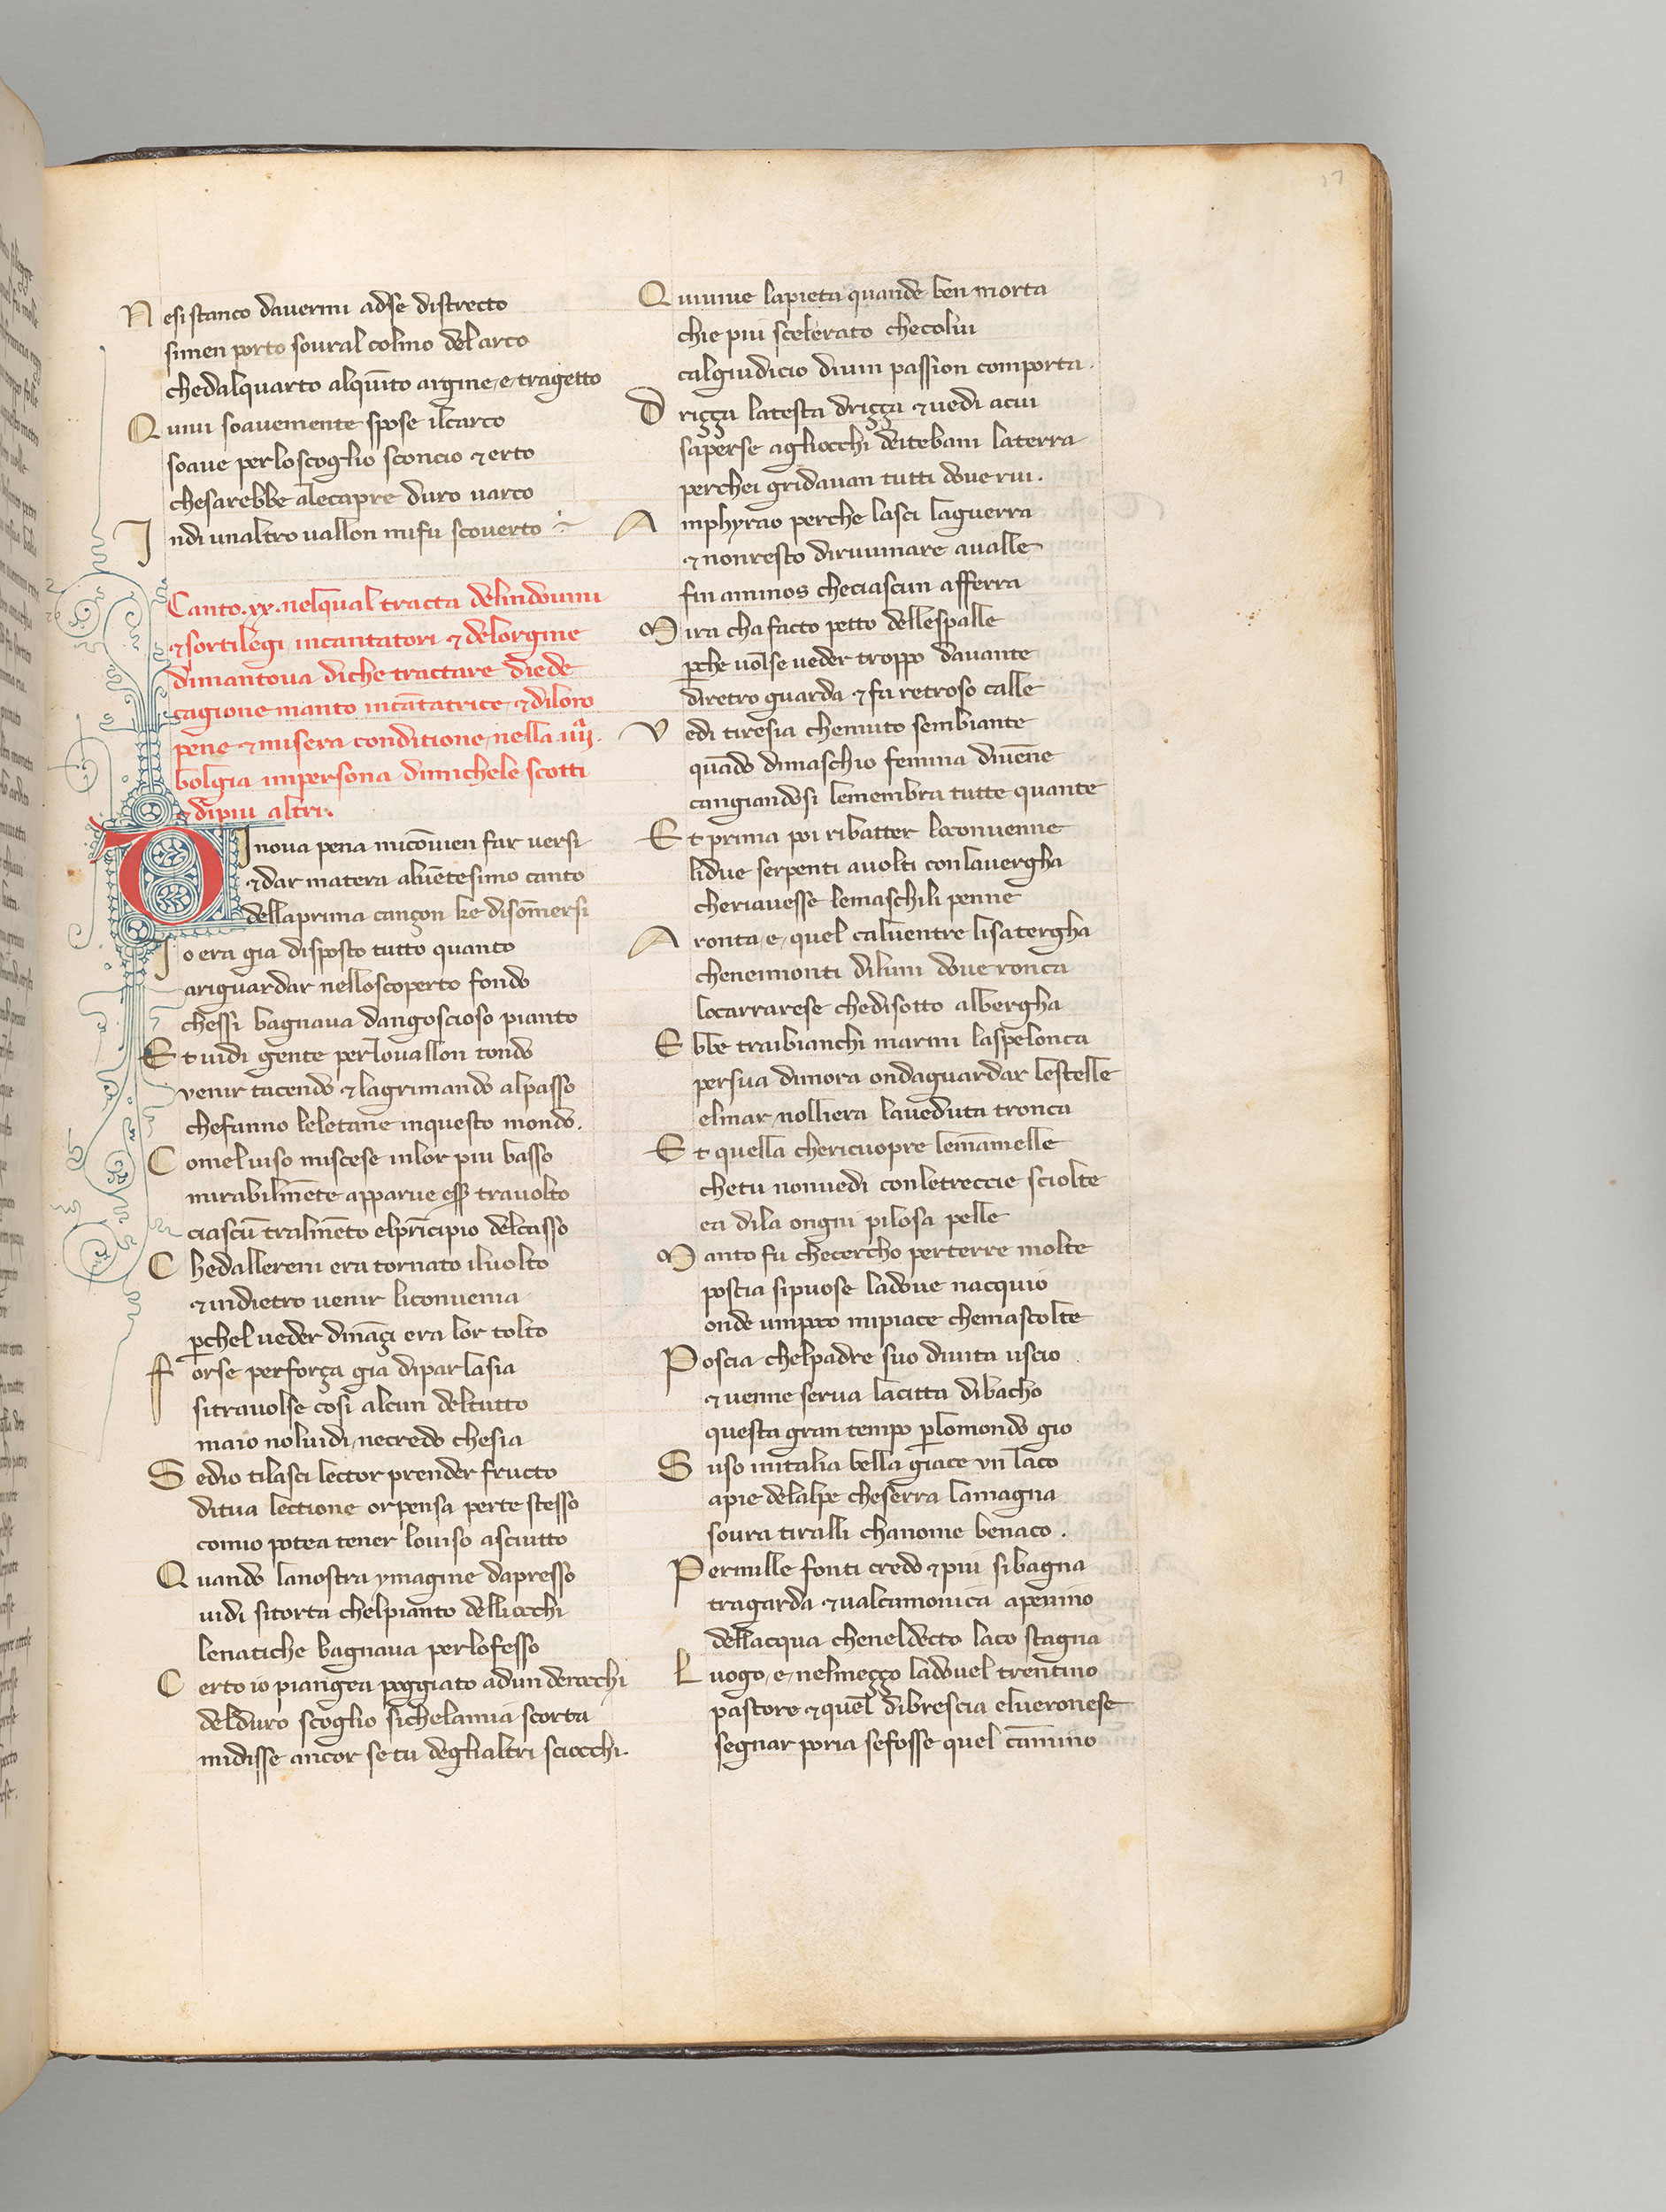 17
Nesi stanco davermi adse distrecto
simen porto soural colmo delarco
chedalquarto alquīto argine, e, tragetto
Quiui soauemente spose ilcarco
soaue perloscoglio sconcio & erto
chesarebbe alecapre duro varco
Indi unaltro uallon mifu scouerto
Canto .xx. nelqual tracta delindouini
& sortilegi incantatori & delorgine
dimantoua diche tractare diede
cagione manto incātatrice & diloro
pene & misera conditione nella iiij.
bolgia inpersona dimichele scotti
& dipiu altri.
DInoua pena micōuien far uersi
& dar matera aluētesimo canto
dellaprima cançon ke disōmersi
Io era gia disposto tutto quanto
ariguardar nelloscoperto fondo
chessi bagnaua dangoscioso pianto
Et uidi gente perlouallon tondo
venir tacendo & lagrimando alpasso
chefanno leletane inquesto mondo.
Comel uiso miscese inlor piu basso
mirabilmēte apparue eſſ trauolto
ciascū tralmēto elprīcipio delcasso
Chedallereni era tornato iluolto
& indietro uenir liconuenia
ꝑchel ueder dināçi era lor tolto
Forse perforça gia diparlasia
sitrauolse cosi alcun deltutto
maio noluidi, necredo chesia
Sedio tilasci lector prender fructo
ditua lectione or pensa perte stesso
comio potea tener louiso asciutto
Quando lanostra ymagine dapresso
uidi sitorta chelpianto delliocchi
lenatiche bagnaua perlofesso
Certo io piangea poggiato adun derocchi
delduro scoglio sichelamia scorta
midisse ancor se tu deglialtri sciocchi.
Quiuiue lapieta quande ben morta
chie piu scelerato checolui
calgiudicio diuin passion comporta.
Driçça latesta driçça & uedi acui
saperse agliocchi deitebani laterra
perchei gridauan tutti doue rui.
Amphyrao perche lasci laguerra
& nonresto diruuinare aualle
fin aminos checiascun afferra
Mira cha facto petto dellespalle
ꝑche uolse ueder troppo dauante
diretro guarda & fa retroso calle
Vedi tiresia chemuto sembiante
quādo dimaschio femina diuēne
cangiandosi lemembra tutte quante
Et prima poi ribatter loconuenne
lidue serpenti auolti conlauergha
cheriauesse lemaschili penne
Aronta, e, quel caluentre lisatergha
cheneimonti diluni doue ronca
locarrarese chedisotto albergha
Ebbe traibianchi marmi laspelonca
persua dimora ondaguardar lestelle
elmar, nolliera laueduta tronca
Et quella chericuopre lemāmelle
chetu nonuedi conletreccie sciolte
ea dila ongni pilosa pelle
Manto fu checercho perterre molte
poscia sipuose ladoue nacquio
onde unpoco mipiace chemascolte
Poscia chelpadre suo diuita uscio
& uenne serua lacitta dibacho
questa gran tempo ꝑlomondo gio
Suso initalia bella giace vn laco
apie delalpe cheserra lamagna
soura tiralli chanome benaco.
Permille fonti credo & piu sibagna
tragarda & ualcamonica apenino
dellacqua cheneldecto laco stagna
Luogo, e, nelmeçço ladouel trentino
pastore & quel dibrescia elueronese
segnar poria sefosse quel cāmino